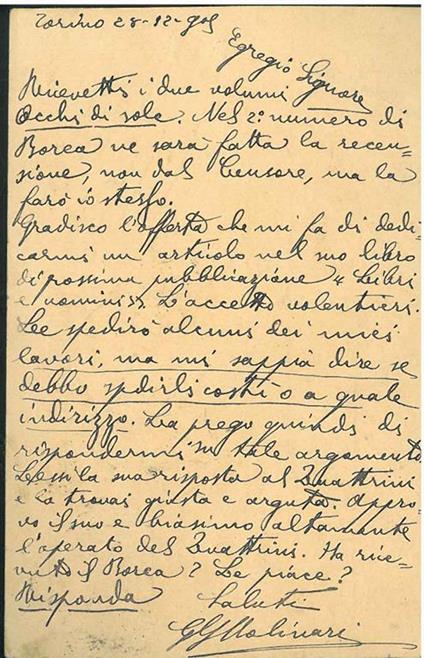 Torino 28-12-905
Egregio Signore
Ricevetti i due volumi
Occhi di sole. Nel 2º numero di
Borea ne sarà fatta la recen-
sione, non dal Censore, ma la
farò io stesso.
Gradisco l'offerta che mi fa di dedi-
carmi un articolo nel suo libro
di prossima pubblicazione "Libri
e uomini". L'accetto volentieri.
Le spedirò alcuni dei miei
lavori, ma mi sappia dire se
debbo spedirli costì o a quale
indirizzo. La prego quindi di
rispondermi su tale argomento.
Lessi la sua risposta al Quattrini
e la trovai giusta e arguta. Appro-
vo il suo e biasimo altamente
l'operato del Quattrini. Ha rice-
vuto il Borea? Le piace?
Risponda
Saluti
GG Molinari